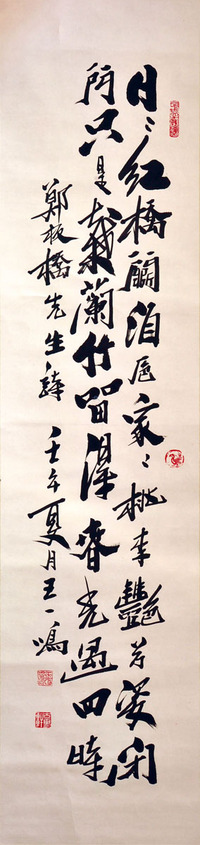 日〻紅橋鬭酒卮家〻桃李艷芳姿閉
門只是栽蘭竹留得春光過四時
鄭板橋先生詩 壬午夏月王一鳴